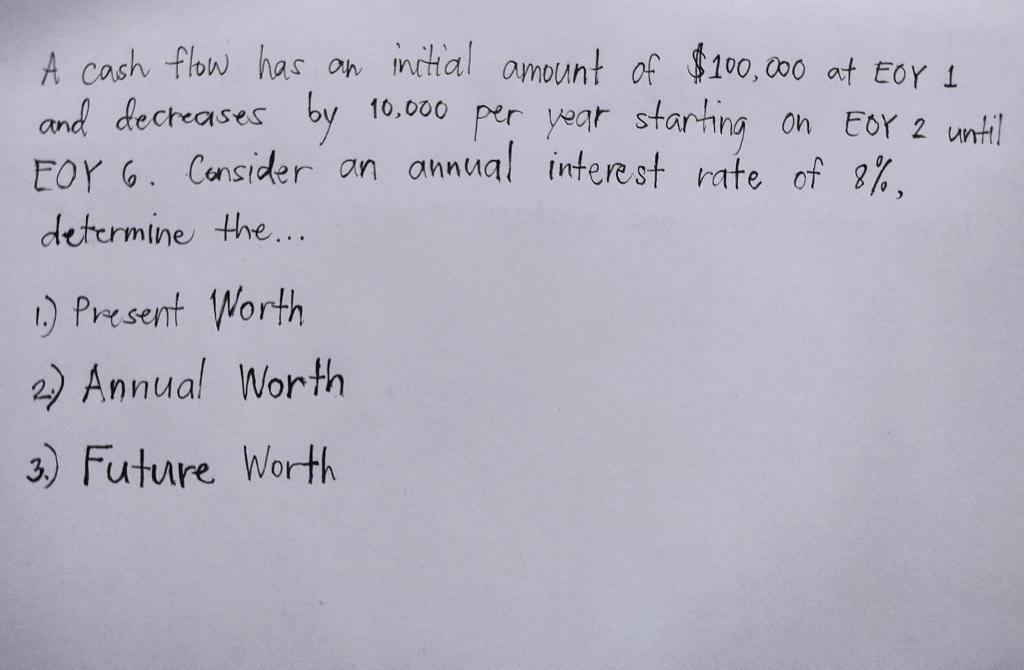 A cash flow has an initial amount of $100,000 at EOY 1
and decreases by 10,000 per year starting on EOY 2 until
EOY 6. Consider an annual interest rate of 8%,
determine the...
1.) Present Worth
2.) Annual Worth
3.) Future Worth